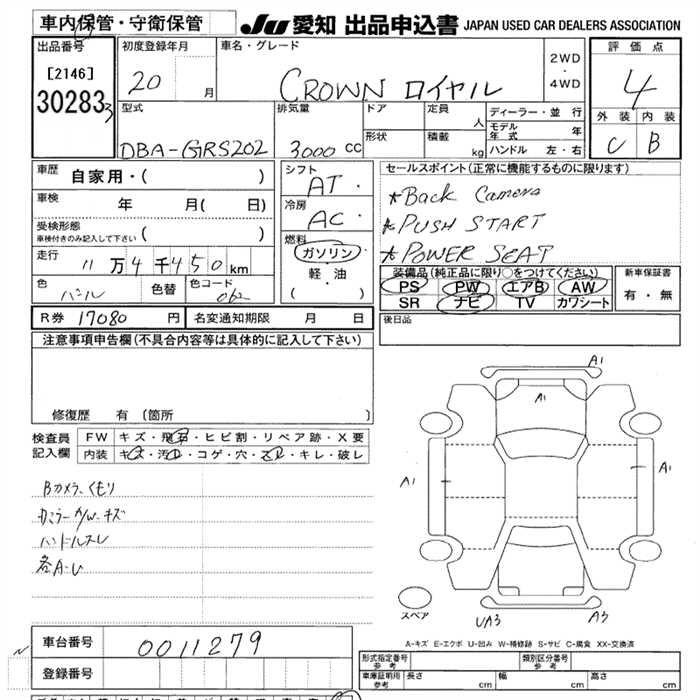 車内保管・守衛保管
JU 愛知 出品申込書 JAPAN USED CAR DEALERS ASSOCIATION
出品番号
[2146]
30283
初度登録年月
20 月
車名・グレード
CROWN ロイヤル
2WD
・
4WD
評価点
4
外装 内装
C B
型式
DBA-GRS202
排気量
3000 CC
ドア
形状
定員 人
積載 kg
ディーラー・並行
モデル年式 年
ハンドル 左・右
車歴
自家用・( )
車検 年 月( 日)
受検形態
車検付きのみ記入して下さい ( )
走行
11万4千450km
色
パール
色替
色コード
062
シフト
AT・
冷房
AC・
燃料
ガソリン
軽・油
( )
セールスポイント(正常に機能するものに限ります)
★Back Camera
★PUSH START
★POWER SEAT
装備品(純正品に限り○をつけてください)
PS PW エアB AW
SR ナビ TV カワシート
新車保証書
有・無
R券 17080 円 名変通知期限 月 日
後日品
注意事項申告欄(不具合内容等は具体的に記入して下さい)
修復歴 有 (箇所 )
検査員記入欄
FW キズ・飛石・ヒビ割・リペア跡・X要
内装 キズ・汚れ・コゲ・穴・スレ・キレ・破レ
Bカメラくもり
カミラーA/W-キズ
ハンドルスレ
各A-U
A1
A1
A1
A1
スペア
UA3
A3
A-キズ E-エクボ U-凹み W-補修跡 S-サビ C-腐食 XX-交換済
車台番号 0011279
登録番号
形式指定番号参考
類別区分番号参考
車庫証明用参考 長さ cm 幅 cm 高さ cm